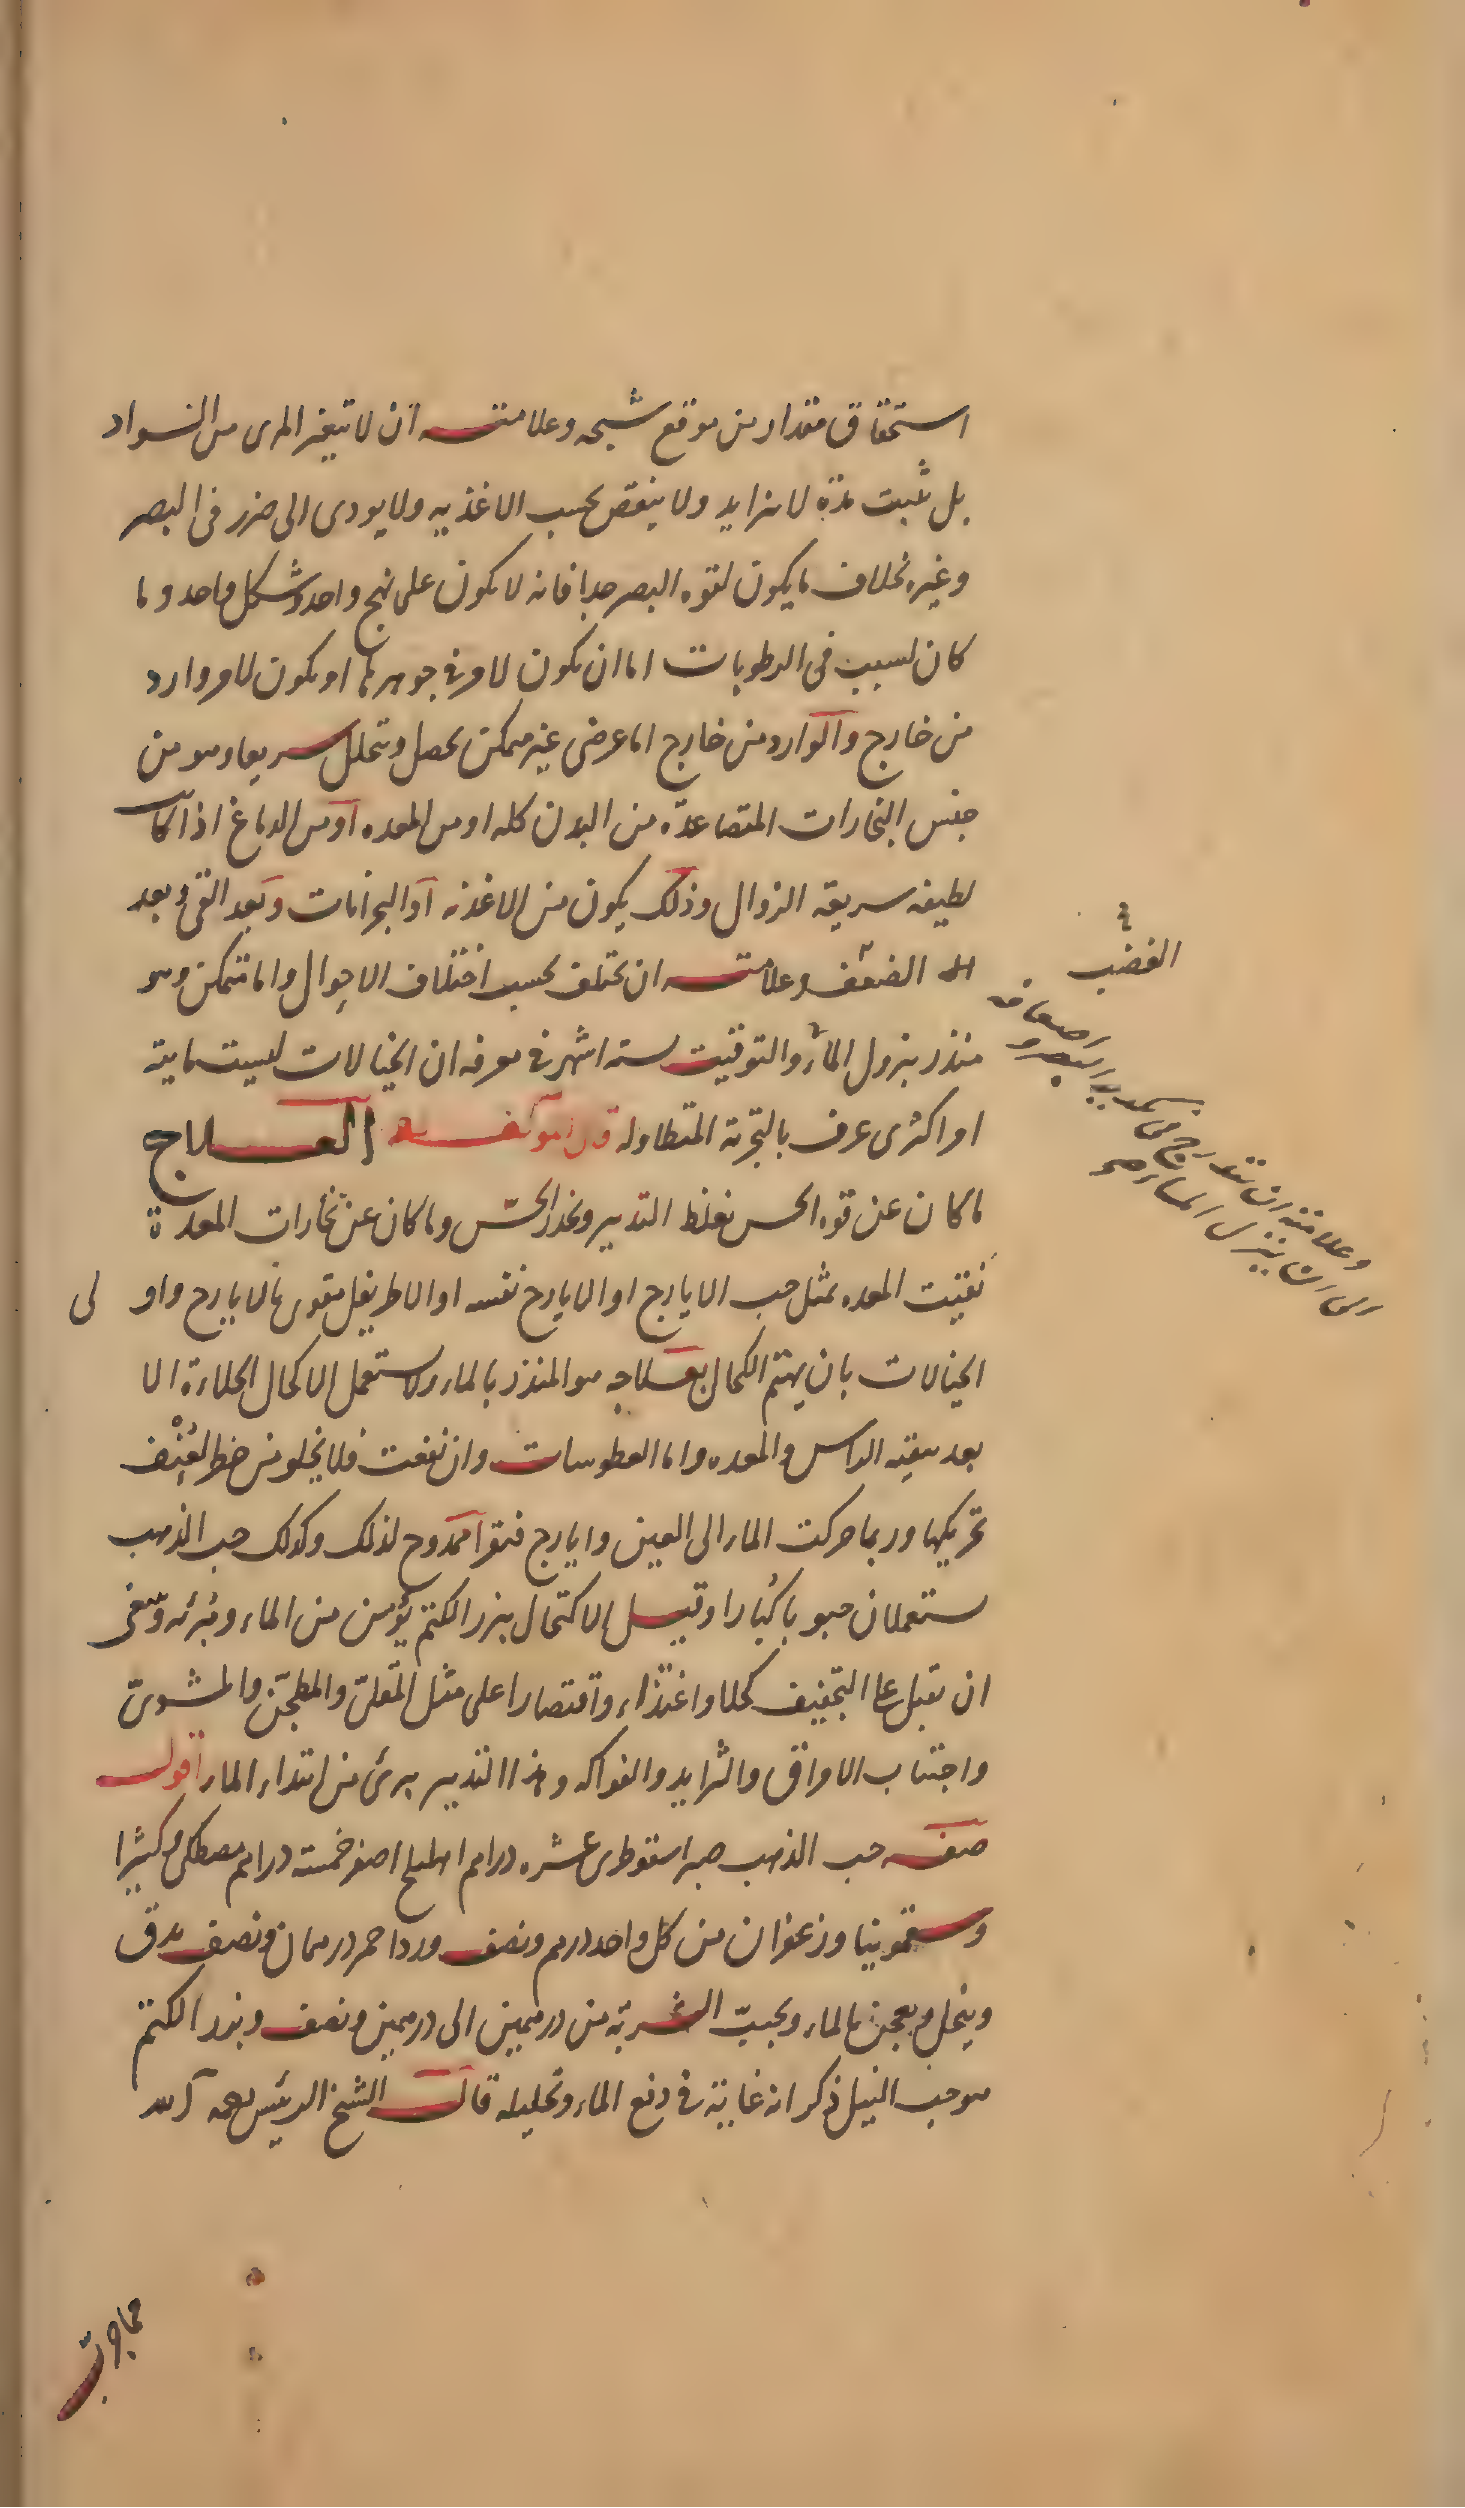 استحقاق مقدار من موقع شبحه وعلامته ان لا يتغير المرى من السواد
بل ثبت مدة لا يتزايد ولا ينقص بحسب الاغذيه ولا يودى الى ضرر فى البصر
وغيره بخلاف ما يكون لقوه البصر جدا فانه لا يكون على نهج واحد وشكل واحد وما
كان لسبب فى الرطوبات اما ان يكون لامر فى جوهرها او يكون لامر وارد
من خارج والوارد من خارج اما عرضى غير ممكن يحصل ويتحلل سريعا وهو من
جنس البخارات المتصاعدة من البدن كله او من المعده او من الدماغ اذا كانت
لطيفه سريعة الزوال وذلك يكون من الاغذيه او البحرانات وبعد القئ وبعد
الضعف وعلامته ان يختلف بحسب اختلاف الاحوال واما متمكن وهو
منذر بنزول الماء والتوقيت ستة اشهر فى معرفه ان الخيالات ليست مايية
او اكثرى عرف بالتجربة المتطاوله قال مولفه العلاج
ما كان عن قوه الحس بغلظ التدبير ويخدر الحسّ وما كان عن بخارات المعدة
نقيت المعده بمثل حب الايارج او الايارج نفسه او الاطريفل مقوى بالايارج واولى
الخيالات بان يهتم الكحال بعلاجه هو المنذر بالماء ولا يستعمل الاكحال الجلاءة الا
بعد تنقيه الراس والمعده واما العطوسات وان نفعت فلا يخلو من خطر لعُنْف
تحريكها وربما حركت الماء الى العين وايارج فيقرا ممدوح لذلك وكذلك حب الذهب
يستعملان حبوبا كبارا وقيل الاكتحال ببزر الكتم يؤمن من الماء ويبرئه وينبغى
ان يقبل على التجفيف كحلا واغتذاء واقتصارا على مثل المقلىّ والمطجّن والمشوىّ
واجتناب الامراق والثرايد والفواكه وهذا التدبير يبرئ من ابتداء الماء اقول
صفه حب الذهب صبر اسقوطرى عشره دراهم اهليلج اصفر خمسة دراهم مصطكى وكثيرا
وسقمونيا وزعفران من كل واحد درهم ونصف وردا حمر درهمان ونصف يدق
وينخل ويعجن بالماء ويحبب الشربة من درهمين الى درهمين ونصف وبزر الكتم
هو حب النيل ذكر انه غاية فى دفع الماء وتحليله قال الشيخ الرئيس رحمه الله
الغضب
وعلامته ان يتدرج فى تكدير البصر واضعافه
الى ان ينزل الماء صح